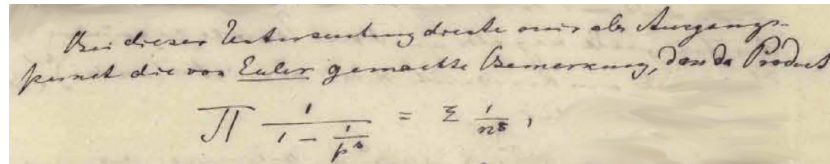 Bei dieser Untersuchung diente mir als Ausgangs-
punct die von Euler gemachte Bemerkung, dass das Product
∏ 1/(1 − 1/p^s) = Σ 1/n^s,